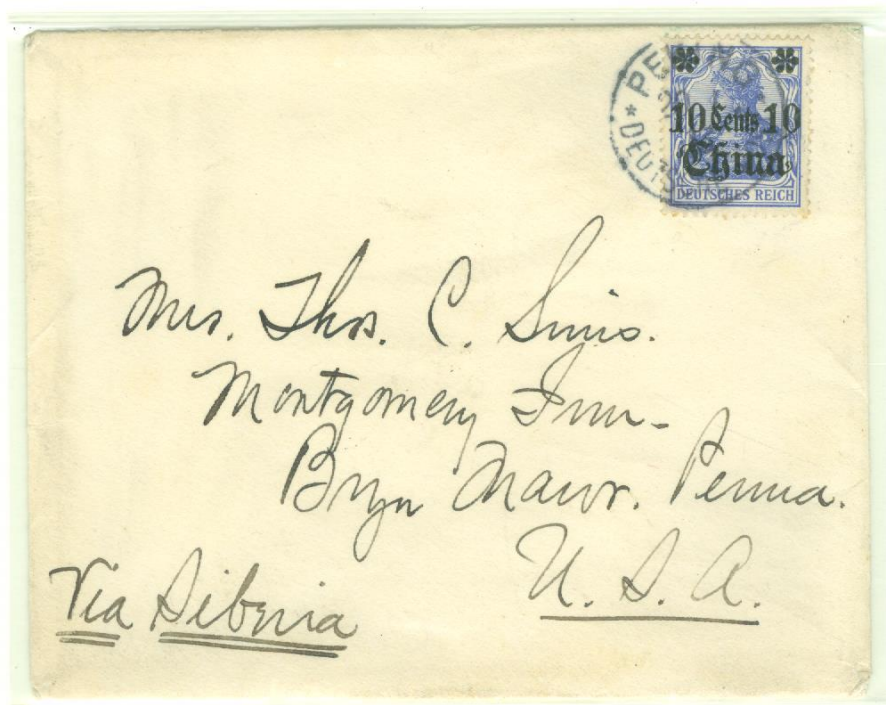 PEKING
* DEUTSCHE
10 Cents 10
China
DEUTSCHES REICH
Mrs. Thos. C. Sims.
Montgomery Inn-
Bryn Mawr. Penna.
U. S. A.
Via Siberia